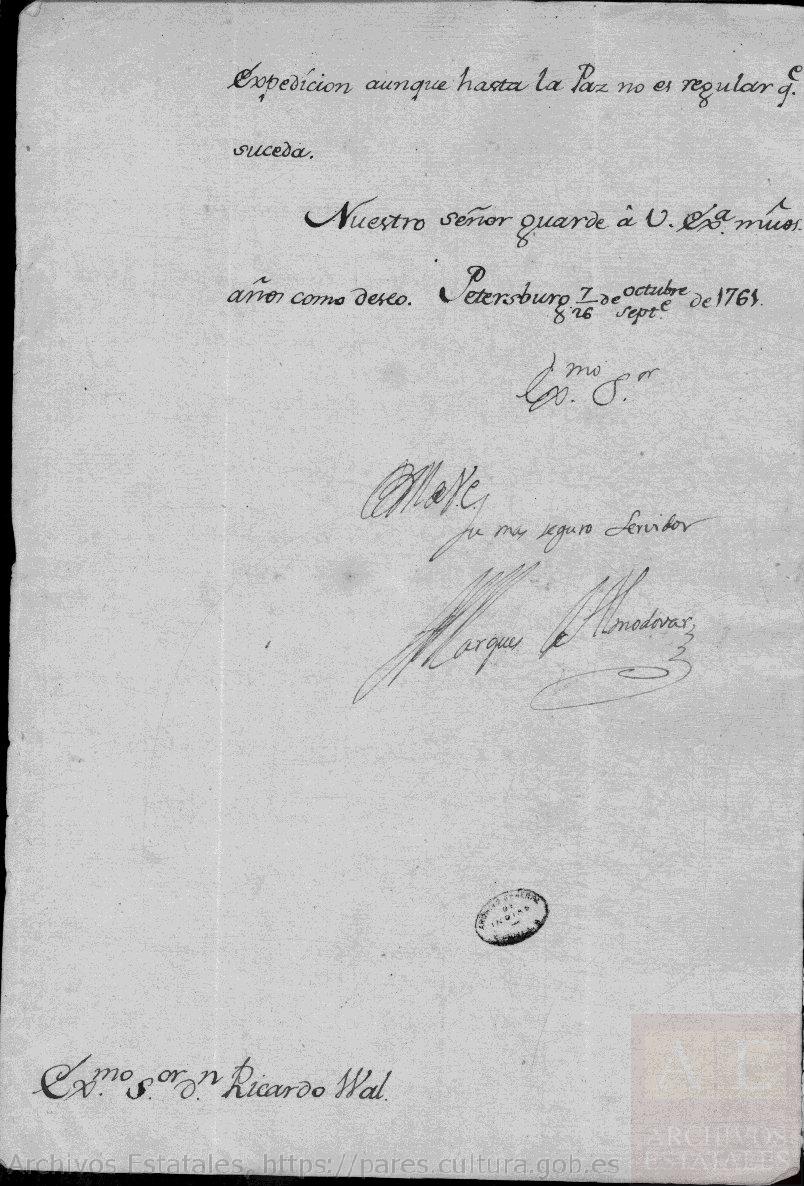 Expedicion aunque hasta la Paz no es regular q.e
suceda.
Nuestro señor guarde â V. Ex.a mūos.
años como deseo. Petersburg 7/26 de octubre/sept.e de 1761.
Ex.mo S.or
su mas seguro Servidor
Marques de Almodovar
ARCHIVO GENERAL
DE
INDIAS
Ex.mo S.or d.n Ricardo Wal.
AE
ARCHIVOS
ESTATALES
Archivos Estatales, https://pares.cultura.gob.es